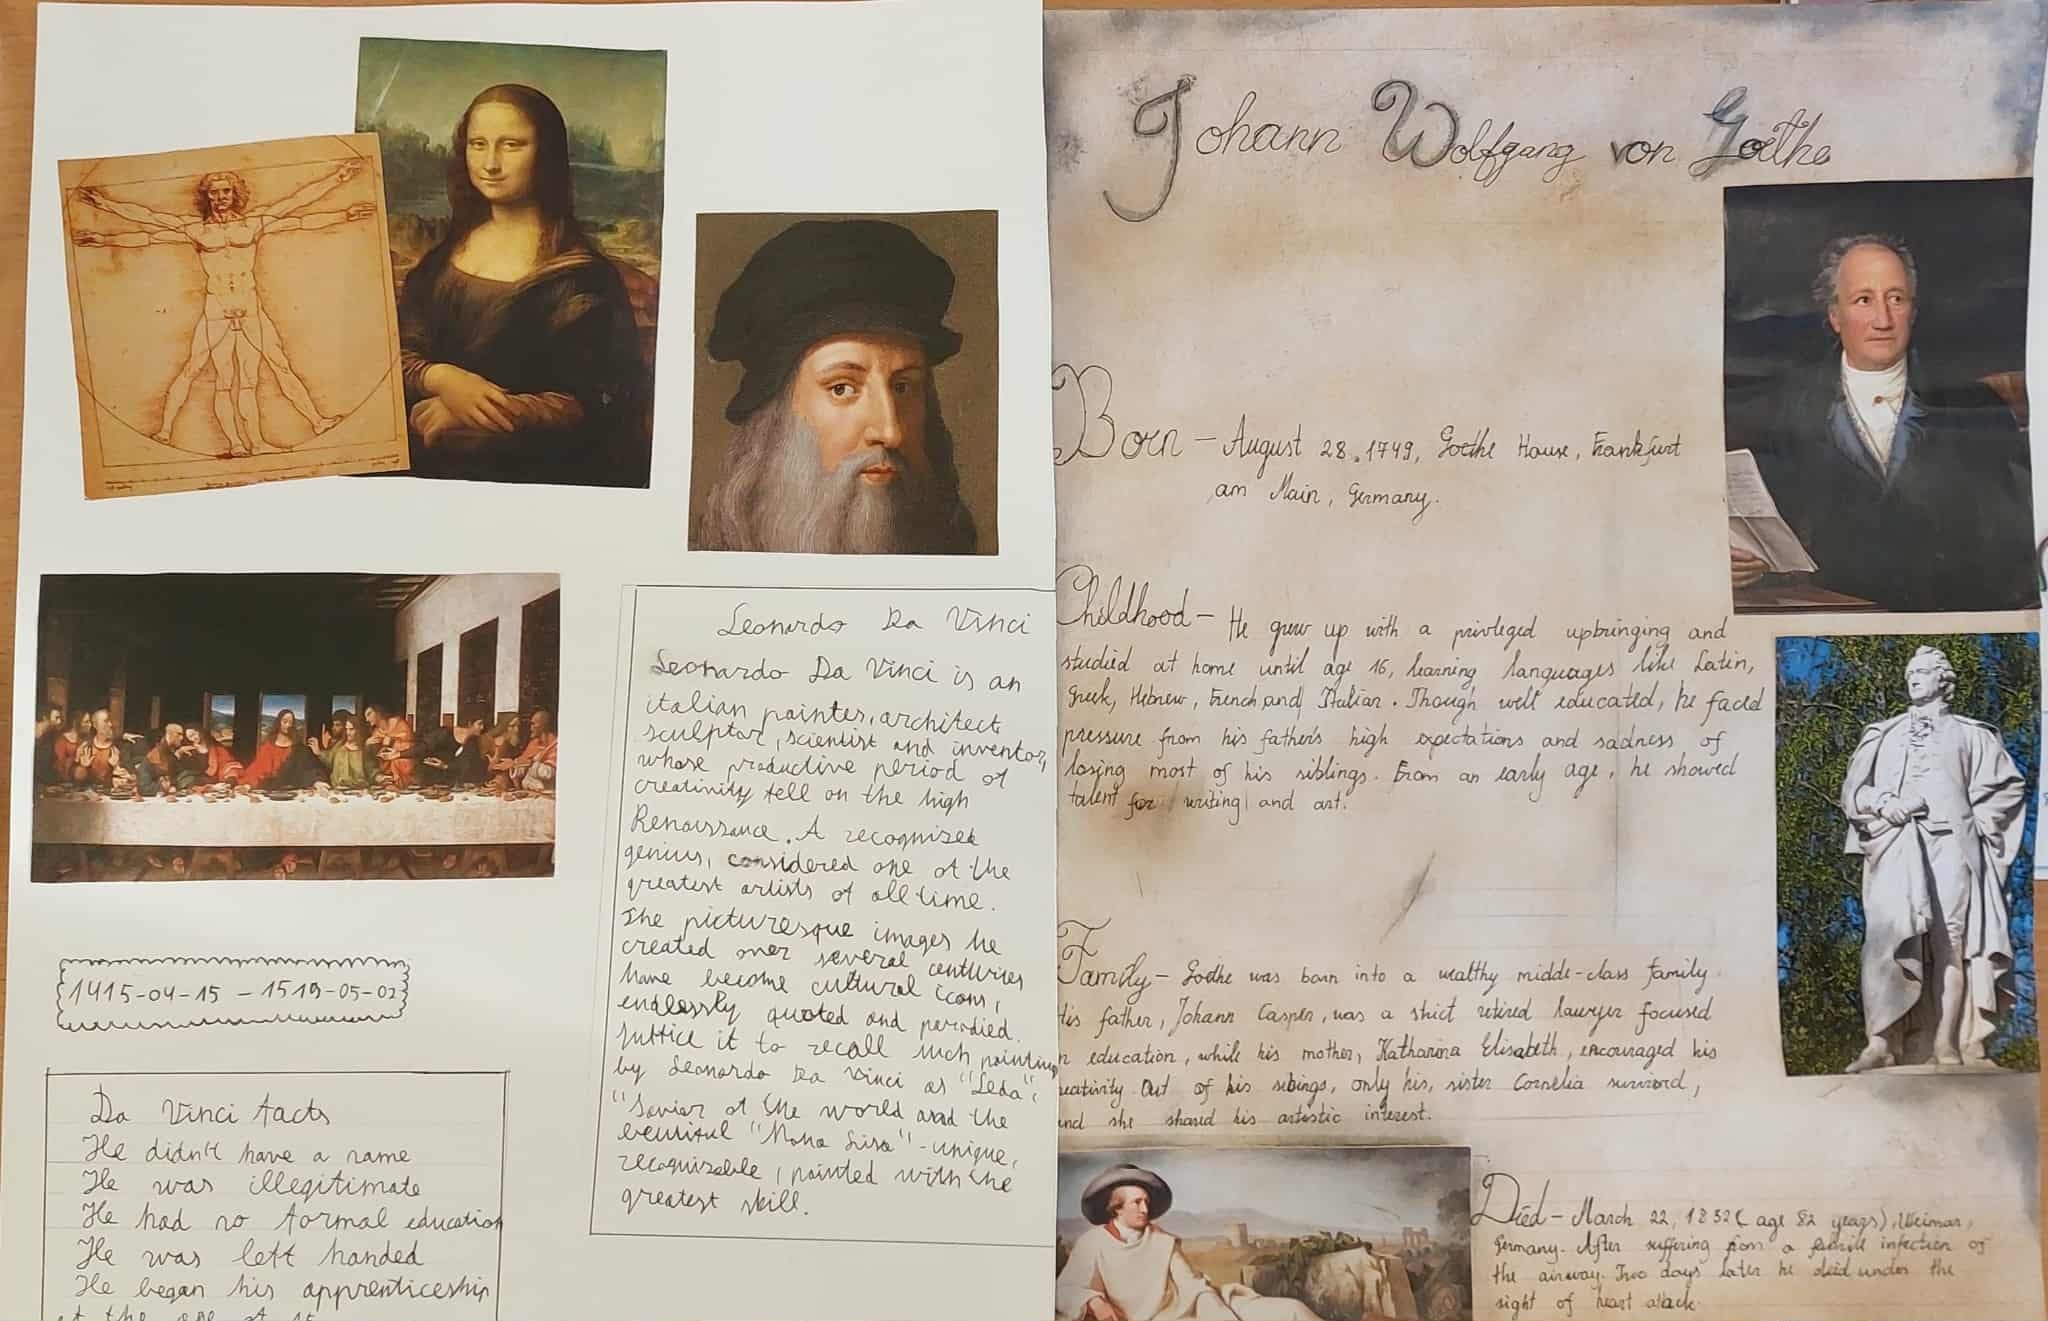 1415-04-15 - 1519-05-02
Da Vinci facts
He didn't have a name
He was illegitimate
He had no formal education
He was left handed
He began his apprenticeship
at the age of 15
Leonardo Da Vinci
Leonardo Da Vinci is an
italian painter, architect,
sculptor, scientist and inventor,
whose productive period of
creativity fell on the high
Renaissance. A recognized
genius, considered one of the
greatest artists of all time.
The picturesque images he
created over several centuries
have become cultural icons,
endlessly quoted and parodied.
Suffice it to recall such painting
by Leonardo Da Vinci as "Leda",
"Savior of the world and the
beutiful "Mona Lisa" - unique,
recognizable, painted with the
greatest skill.
Johann Wolfgang von Goethe
Born - August 28, 1749, Goethe House, Frankfurt
am Main, Germany.
Childhood - He grew up with a privleged upbringing and
studied at home until age 16, learning languages like Latin,
Greek, Hebrew, French and Italian. Though well educated, he faced
pressure from his father's high expectations and sadness of
losing most of his siblings. From an early age, he showed
talent for writing and art.
Family - Goethe was born into a wealthy midde-class family
His father, Johann Casper, was a strict retired lawyer focused
n education, while his mother, Katharina Elisabeth, encouraged his
reativity. Out of his sibings, only his, sister Cornelia survived,
and she shared his artistic interest.
Died - March 22, 1832 (age 82 years), Weimar,
Germany. After suffering from a febrile infection of
the airway. Two days later he died under the
sight of heart attack.